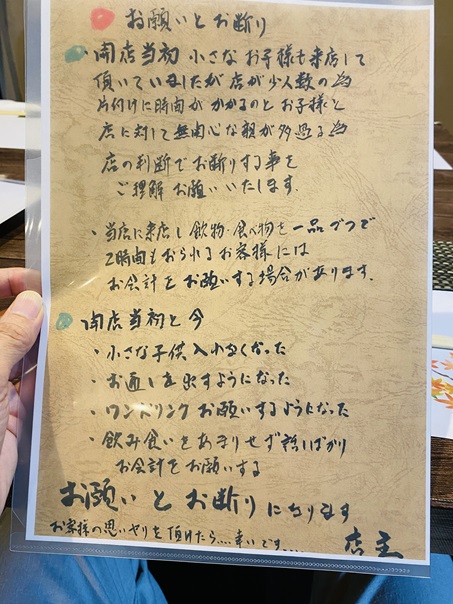 お願いとお断り
・開店当初 小さなお子様も来店して
頂いていましたが店が少人数の為
片付けに時間がかかるのとお子様と
店に対して無関心な親が多過る為
店の判断でお断りする事を
ご理解お願いいたします.
・当店に来店し飲物・食べ物を一品づつで
2時間もおられるお客様には
お会計をお願いする場合があります.
開店当初と今
・小さな子供入れなくなった
・お通しを出すようになった
・ワンドリンクお願いするようになった
・飲み食いをあまりせず話しばかり
お会計をお願いする
お願いとお断りになります
お客様の思いやりを頂けたら...幸いです....
店主